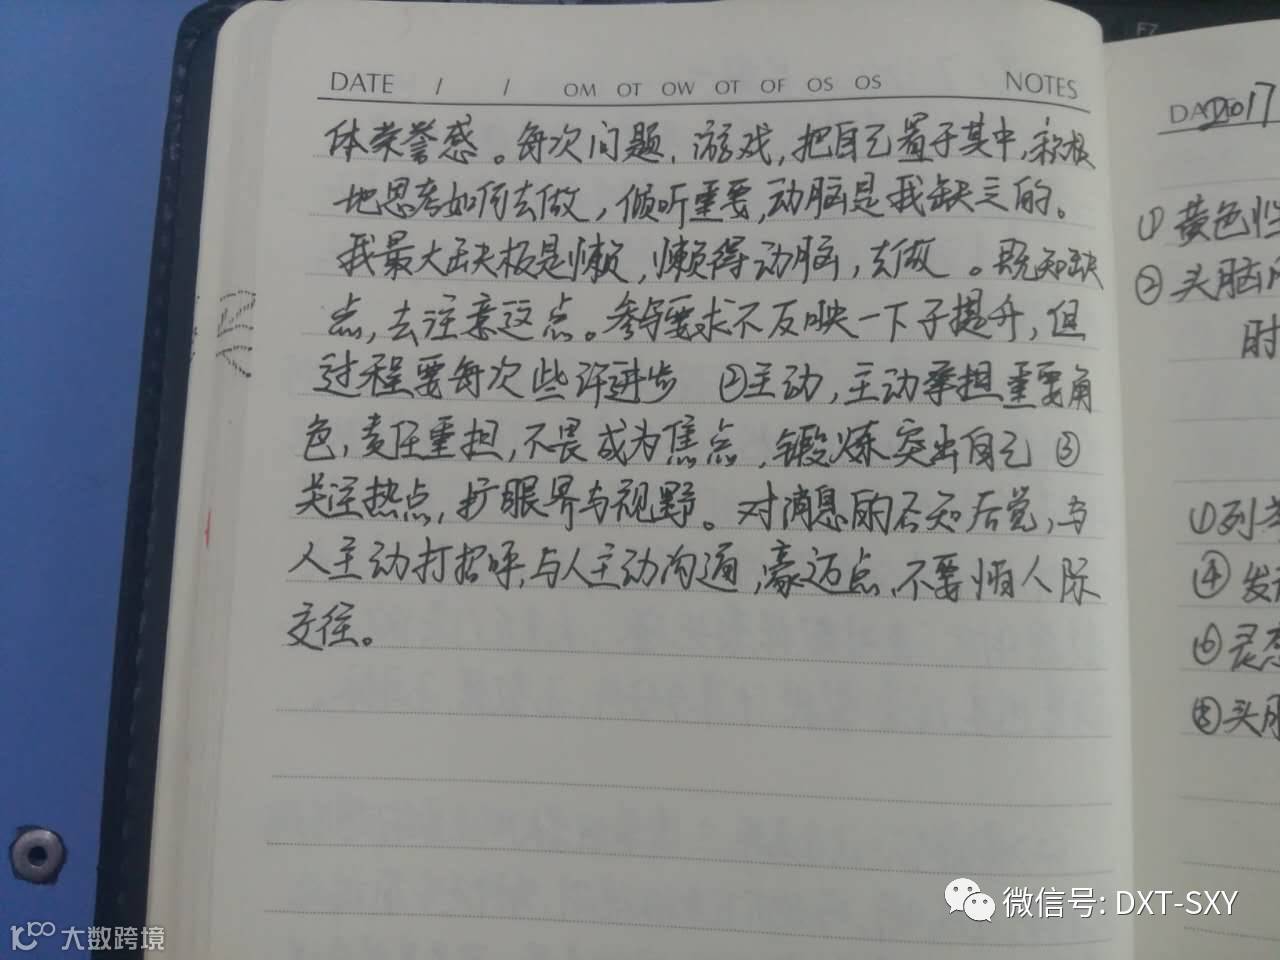 DATE / / OM OT OW OT OF OS OS NOTES
体荣誉感。每次问题、游戏,把自己置于其中,积极
地思考如何去做,倾听重要,动脑是我缺乏的。
我最大缺极是懒,懒得动脑,去做。既知缺
点,去注意这点。参与要求不反映一下子提升,但
过程要每次些许进步 ②主动,主动承担重要角
色,责任重担,不畏成为焦点,锻炼突出自己 ③
关注热点,扩眼界与视野。对消息的后知后觉,与
人主动打招呼,与人主动沟通,豪迈点,不要惧人际
交往。
F7
2017
①黄色
②头脑
时
①列
④发
⑥灵
⑧头
微信号: DXT-SXY
大数跨境